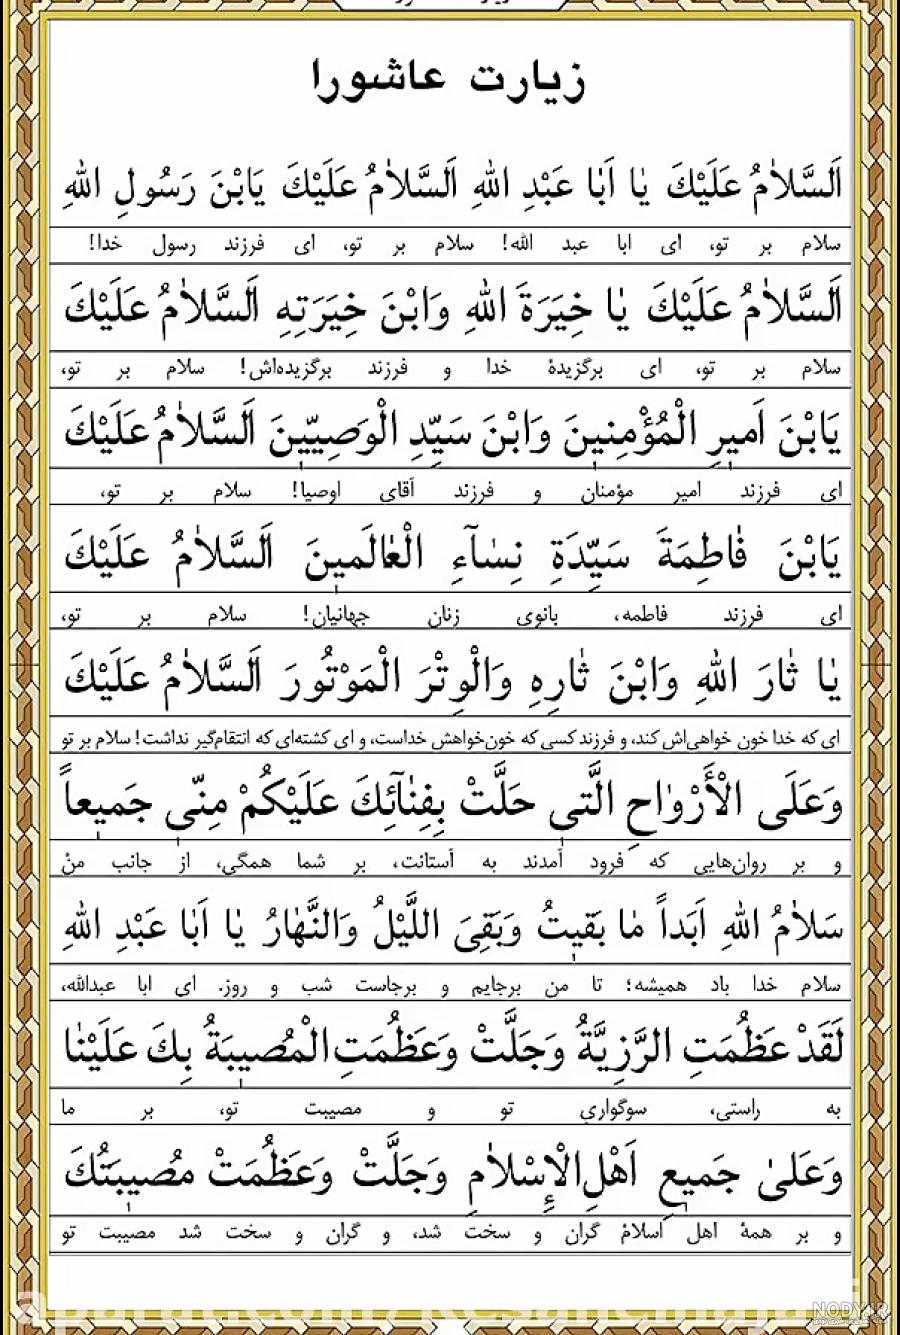 زیارت عاشورا
اَلسَّلاٰمُ عَلَیْكَ یٰا اَبٰا عَبْدِ اللهِ اَلسَّلاٰمُ عَلَیْكَ یَابْنَ رَسُولِ اللهِ
سلام بر تو، ای ابا عبد الله! سلام بر تو، ای فرزند رسول خدا!
اَلسَّلاٰمُ عَلَیْكَ یٰا خِیَرَةَ اللهِ وَابْنَ خِیَرَتِهِ اَلسَّلاٰمُ عَلَیْكَ
سلام بر تو، ای برگزیدهٔ خدا و فرزند برگزیده‌اش! سلام بر تو،
یَابْنَ اَمیٖرِ الْمُؤْمِنیٖنَ وَابْنَ سَیِّدِ الْوَصِیّیٖنَ اَلسَّلاٰمُ عَلَیْكَ
ای فرزند امیر مؤمنان و فرزند آقای اوصیا! سلام بر تو،
یَابْنَ فٰاطِمَةَ سَیِّدَةِ نِسٰآءِ الْعٰالَمیٖنَ اَلسَّلاٰمُ عَلَیْكَ
ای فرزند فاطمه، بانوی زنان جهانیان! سلام بر تو،
یٰا ثٰارَ اللهِ وَابْنَ ثٰارِهِ وَالْوِتْرَ الْمَوْتُورَ اَلسَّلاٰمُ عَلَیْكَ
ای که خدا خون خواهی‌اش کند، و فرزند کسی که خون‌خواهش خداست، و ای کشته‌ای که انتقام‌گیر نداشت! سلام بر تو
وَعَلَی الْأَرْوٰاحِ الَّتیٖ حَلَّتْ بِفِنٰآئِكَ عَلَیْكُمْ مِنّیٖ جَمیٖعاً
و بر روان‌هایی که فرود آمدند به آستانت، بر شما همگی، از جانب من
سَلاٰمُ اللهِ اَبَداً مٰا بَقیٖتُ وَبَقِیَ اللَّیْلُ وَالنَّهٰارُ یٰا اَبٰا عَبْدِ اللهِ
سلام خدا باد همیشه؛ تا من برجایم و برجاست شب و روز. ای ابا عبدالله،
لَقَدْ عَظُمَتِ الرَّزِیَّةُ وَجَلَّتْ وَعَظُمَتِ الْمُصیٖبَةُ بِكَ عَلَیْنٰا
به راستی، سوگواری تو و مصیبت تو، بر ما
وَعَلیٰ جَمیٖعِ اَهْلِ الْإِسْلاٰمِ وَجَلَّتْ وَعَظُمَتْ مُصیٖبَتُكَ
و بر همهٔ اهل اسلام گران و سخت شد، و گران و سخت شد مصیبت تو
NODY.IR